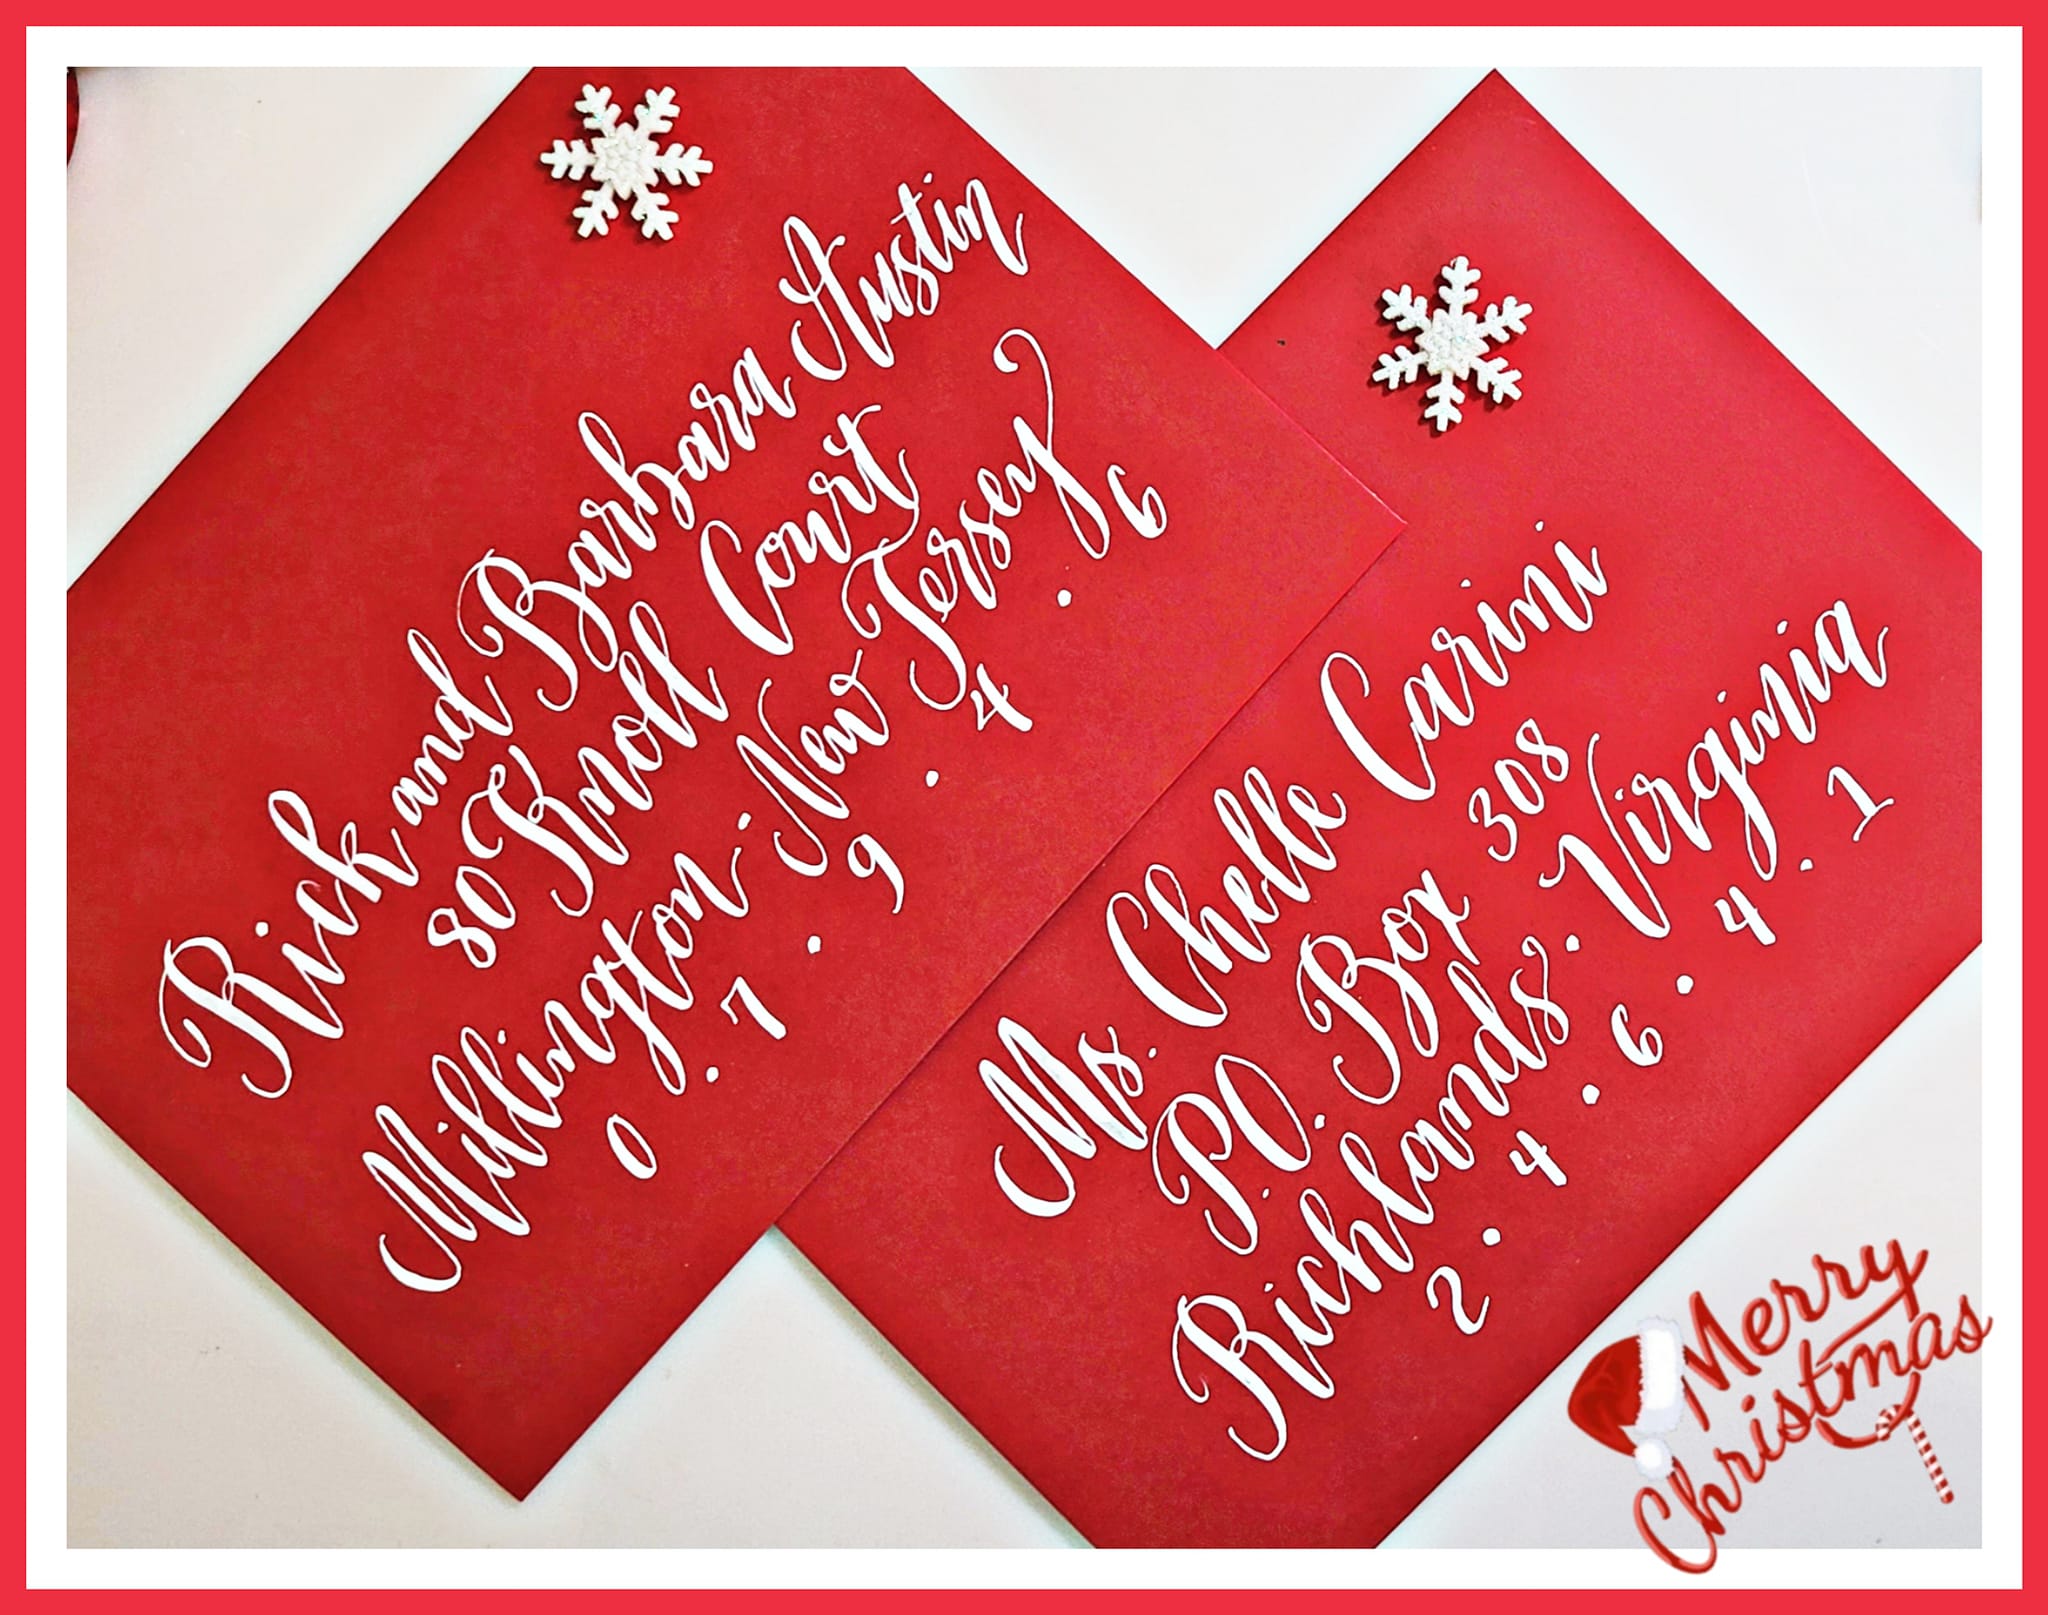 Rick and Barbara Austin
80 Knoll Court
Millington · New Jersey
0 · 7 · 9 · 4 · 6
Ms. Chelle Carini
P.O. Box 308
Richlands · Virginia
2 · 4 · 6 · 4 · 1
Merry
Christmas